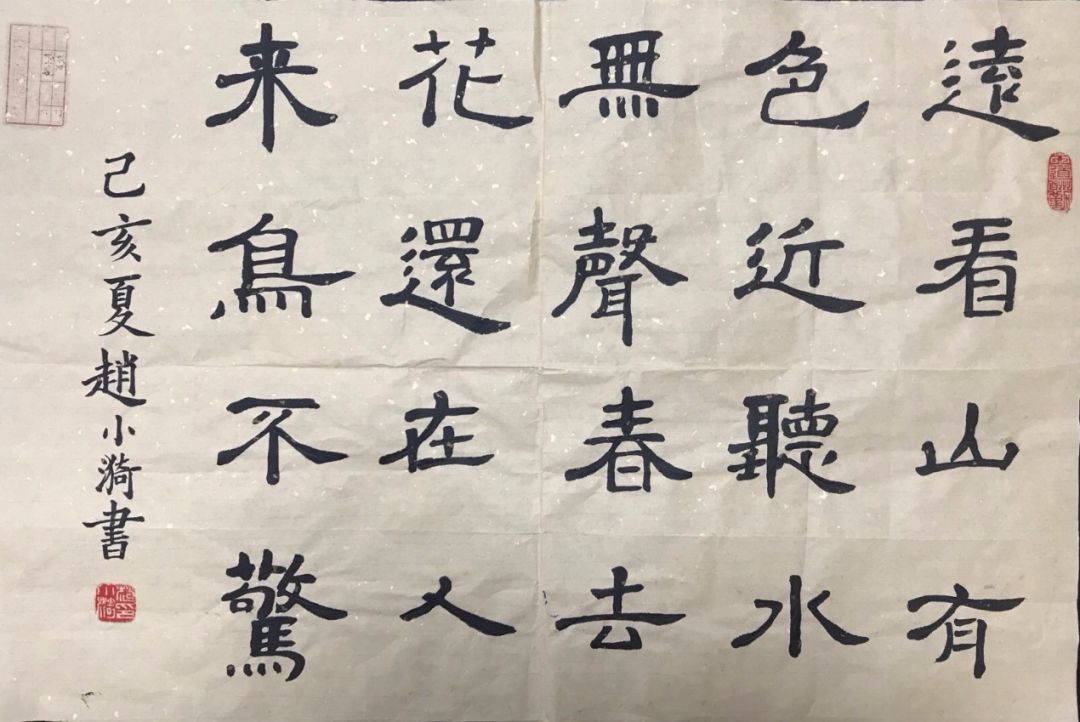 遠看山有
色近聽水
無聲春去
花還在人
来鳥不驚
己亥夏趙小漪書